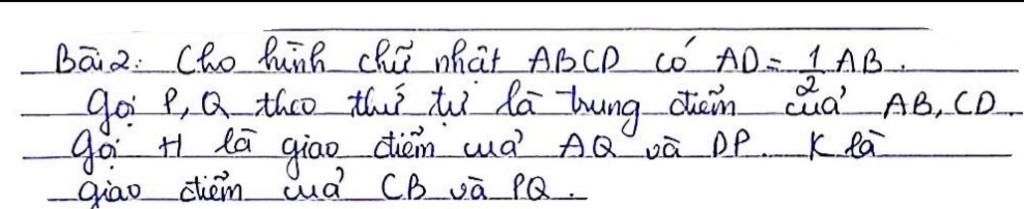 Bài 2: Cho hình chữ nhật ABCD có AD = 1/2 AB.
Gọi P, Q theo thứ tự là trung điểm của AB, CD.
Gọi H là giao điểm của AQ và DP. K là
giao điểm của CB và PQ.